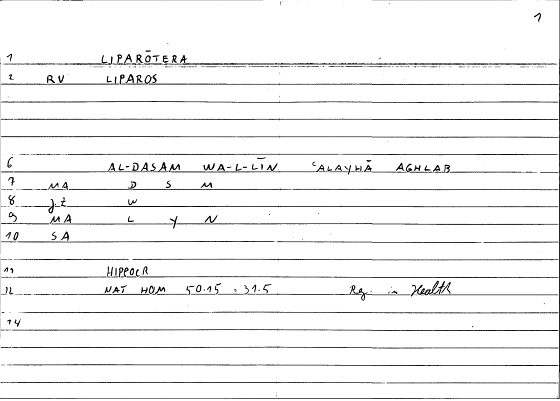 1
1 LIPARŌTERA
2 RV LIPAROS
6 AL-DASAM WA-L-LĪN ʿALAYHĀ AGHLAB
7 MA D S M
8 J.Z W
9 MA L Y N
10 SA
11 HIPPOCR
12 NAT HOM 50.15 = 31.5 Reg. in Health
14